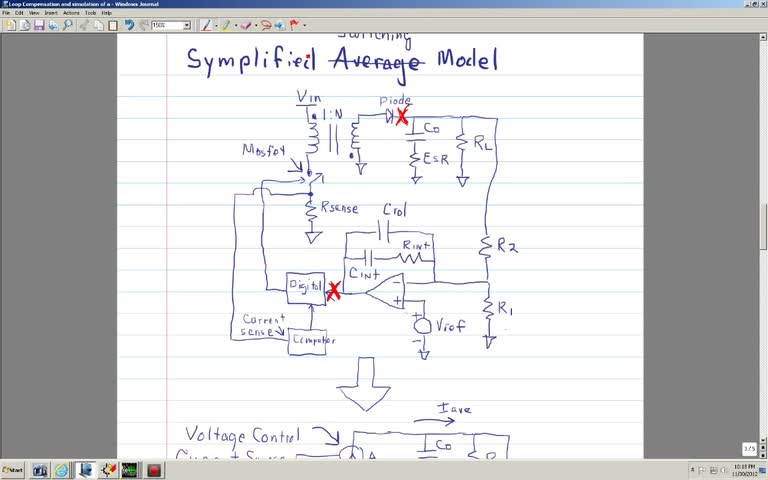 Loop Compensation and simulation of a - Windows Journal
File Edit View Insert Actions Tools Help
150%
Switching
Symplified Average Model
Vin
1:N
Diode
Co
RL
Mosfet
ESR
Rsense
Crol
R2
RINT
CINT
Digital
R1
Current
sense
Vref
Iave
Voltage Control
Co
3 / 5
Start
10:18 PM
11/30/2012